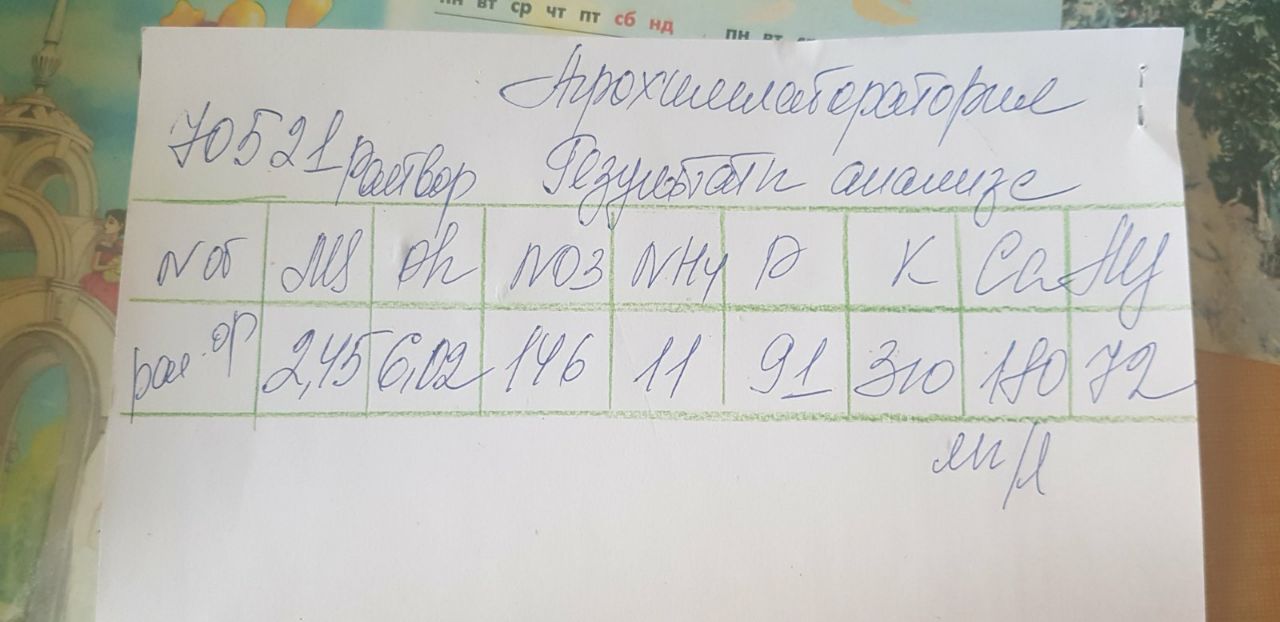 пн вт ср чт пт сб нд
пн вт
Агрохимлаборатория
70521 раствор Результаты анализа
N об MS Ph NO3 NH4 P K Ca Mg
рас-ор 2,45 6,02 146 11 91 310 180 72
мг/л